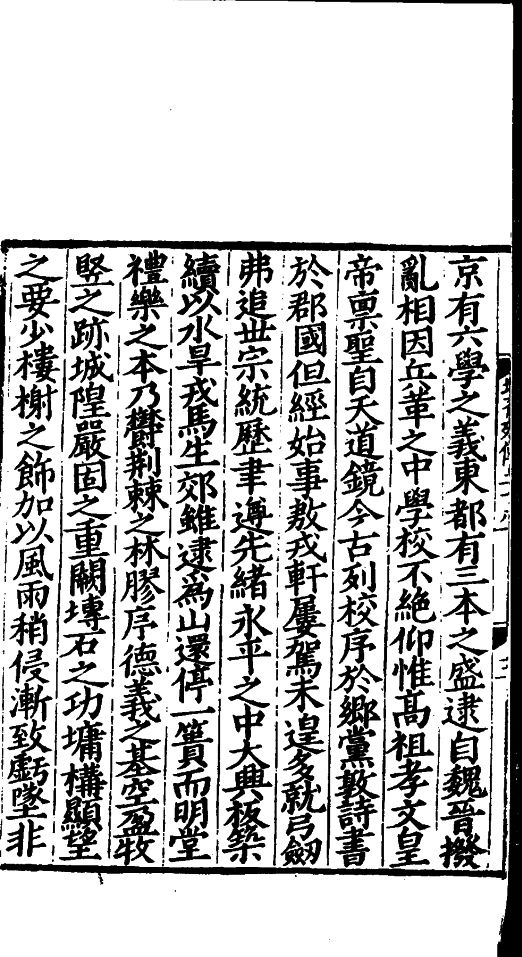 京有六學之義東都有三本之盛逮自魏晉撥
亂相因兵革之中學校不絕仰惟高祖孝文皇
帝稟聖自天道鏡今古列校序於鄉黨敦詩書
於郡國但經始事殷戎軒屢駕未遑多就弓劒
弗追世宗統歷聿遵先緒永平之中大興板築
續以水旱戎馬生郊雖逮爲山還停一簣而明堂
禮樂之本乃鬱荊棘之林膠序德義之基空盈牧
竪之跡城隍嚴固之重闕塼石之功墉構顯望
之要少樓榭之飾加以風雨稍侵漸致虧墜非